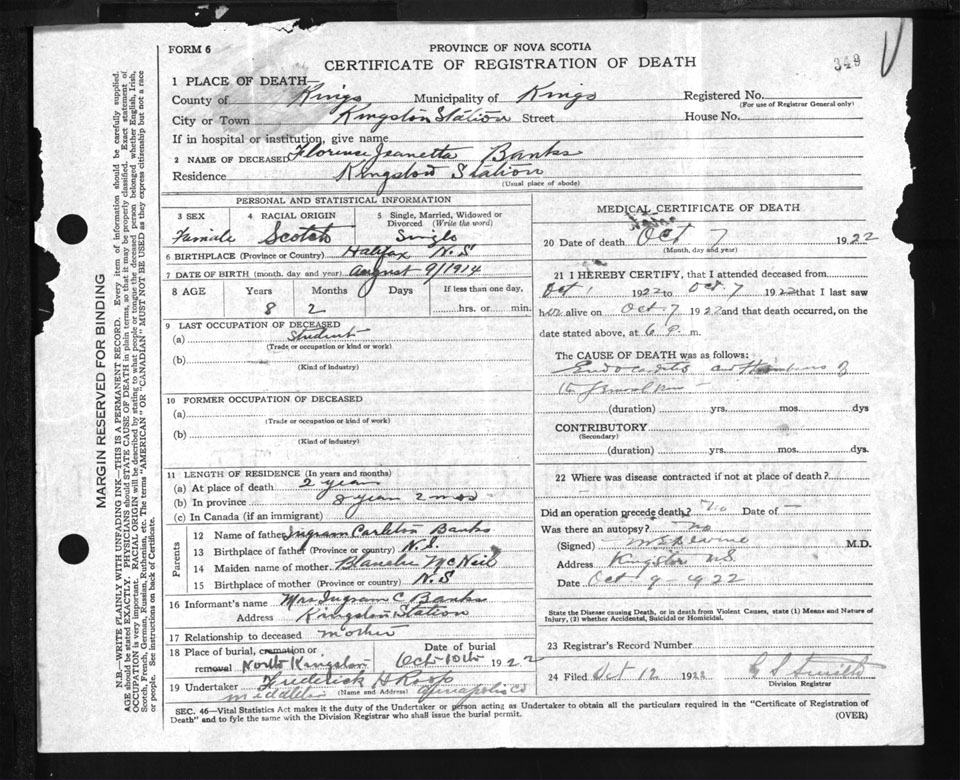 FORM 6
PROVINCE OF NOVA SCOTIA
CERTIFICATE OF REGISTRATION OF DEATH
349
1 PLACE OF DEATH—
County of Kings Municipality of Kings Registered No.
(For use of Registrar General only)
City or Town Kingston Station Street House No.
If in hospital or institution, give name
2 NAME OF DECEASED Florence Jeanetta Banks
Residence Kingston Station
(Usual place of abode)
PERSONAL AND STATISTICAL INFORMATION
3 SEX 4 RACIAL ORIGIN 5 Single, Married, Widowed or Divorced (Write the word)
Female Scotch Single
6 BIRTHPLACE (Province or Country) Halifax N.S
7 DATE OF BIRTH (month, day and year) August 9/1914
8 AGE Years Months Days If less than one day,
8 2 hrs. or min.
9 LAST OCCUPATION OF DECEASED
(a) Student
(Trade or occupation or kind or work)
(b)
(Kind of industry)
10 FORMER OCCUPATION OF DECEASED
(a)
(Trade or occupation or kind or work)
(b)
(Kind of industry)
11 LENGTH OF RESIDENCE (In years and months)
(a) At place of death 2 years
(b) In province 8 year 2 mos
(c) In Canada (if an immigrant)
Parents
12 Name of father Ingram Carleton Banks
13 Birthplace of father (Province or country) N.S
14 Maiden name of mother Blanche McNeil
15 Birthplace of mother (Province or country) N.S
16 Informant's name Mrs Ingram C. Banks
Address Kingston Station
17 Relationship to deceased mother
18 Place of burial, cremation or removal North Kingston Date of burial Oct 10th 1922
19 Undertaker Frederick H Roop
Middleton (Name and Address) Annapolis Co
MEDICAL CERTIFICATE OF DEATH
20 Date of death Oct 7 1922
(Month, day and year)
21 I HEREBY CERTIFY, that I attended deceased from
Oct 1 1922 to Oct 7 1922 that I last saw
her alive on Oct 7 1922 and that death occurred, on the
date stated above, at 6 P. m.
The CAUSE OF DEATH was as follows:
and of
(duration) yrs. mos. dys
CONTRIBUTORY
(Secondary)
(duration) yrs. mos. dys.
22 Where was disease contracted if not at place of death?
Did an operation precede death? No Date of —
Was there an autopsy? No
(Signed) M.D.
Address Kingston N.S.
Date Oct 9 - 1922
State the Disease causing Death, or in death from Violent Causes, state (1) Means and Nature of
Injury, (2) whether Accidental, Suicidal or Homicidal.
23 Registrar's Record Number
24 Filed Oct 12 1922 Smith
Division Registrar
SEC. 46—Vital Statistics Act makes it the duty of the Undertaker or person acting as Undertaker to obtain all the particulars required in the "Certificate of Registration of
Death" and to fyle the same with the Division Registrar who shall issue the burial permit.
(OVER)
MARGIN RESERVED FOR BINDING
N.B.—WRITE PLAINLY WITH UNFADING INK—THIS IS A PERMANENT RECORD. Every item of information should be carefully supplied.
AGE should be stated EXACTLY. PHYSICIANS should STATE CAUSE OF DEATH in plain terms, so that it may be properly classified. Exact statement of
OCCUPATION is very important. RACIAL ORIGIN will be described by stating to what people or tongue the deceased person belonged whether English, Irish,
Scotch, French, German, Russian, Ruthenian, etc. The terms "AMERICAN" OR "CANADIAN" MUST NOT BE USED as they express citizenship but not a race
or people. See instructions on back of Certificate.